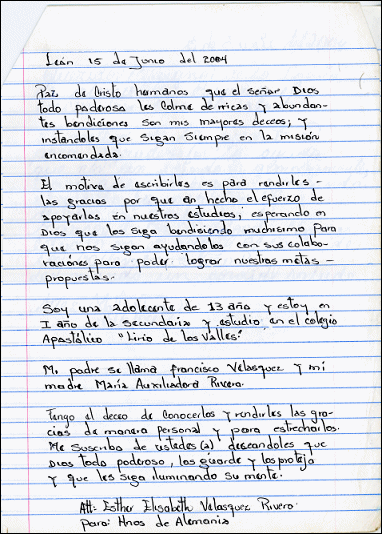 León 15 de Junio del 2004
Paz de Cristo hermanos que el señor Dios
todo poderoso les Colme de ricas y abundan-
tes bendiciones son mis mayores deceos; y
instandoles que sigan siempre en la misión
encomendada.
El motivo de escribirles es para rendirles -
las gracias por que an hecho el efuerzo de
apoyarlas en nuestros estudios; esperando en
Dios que los siga bendisiendo muchisimo para
que nos sigan ayudandolos con sus colabo-
raciones para poder lograr nuestras metas -
propuestas.
Soy una adolecente de 13 año y estoy en
I año de la secundaria y estudio en el colegio
Apostólico "Lirio de los Valles".
Mi padre se llama francisco Velasquez y mi
madre María Auxiliadora Rivera.
Tengo el deceo de Conocerlos y rendirles las gra-
cias de manera personal y para estrecharlos.
Me Suscribo de ustedes(a) deceandoles que
Dios todo poderoso, los guarde y los proteja
y que les siga iluminando su mente.
Att: Esther Elisabeth Velasquez Rivera.
para: Hnos de Alemania